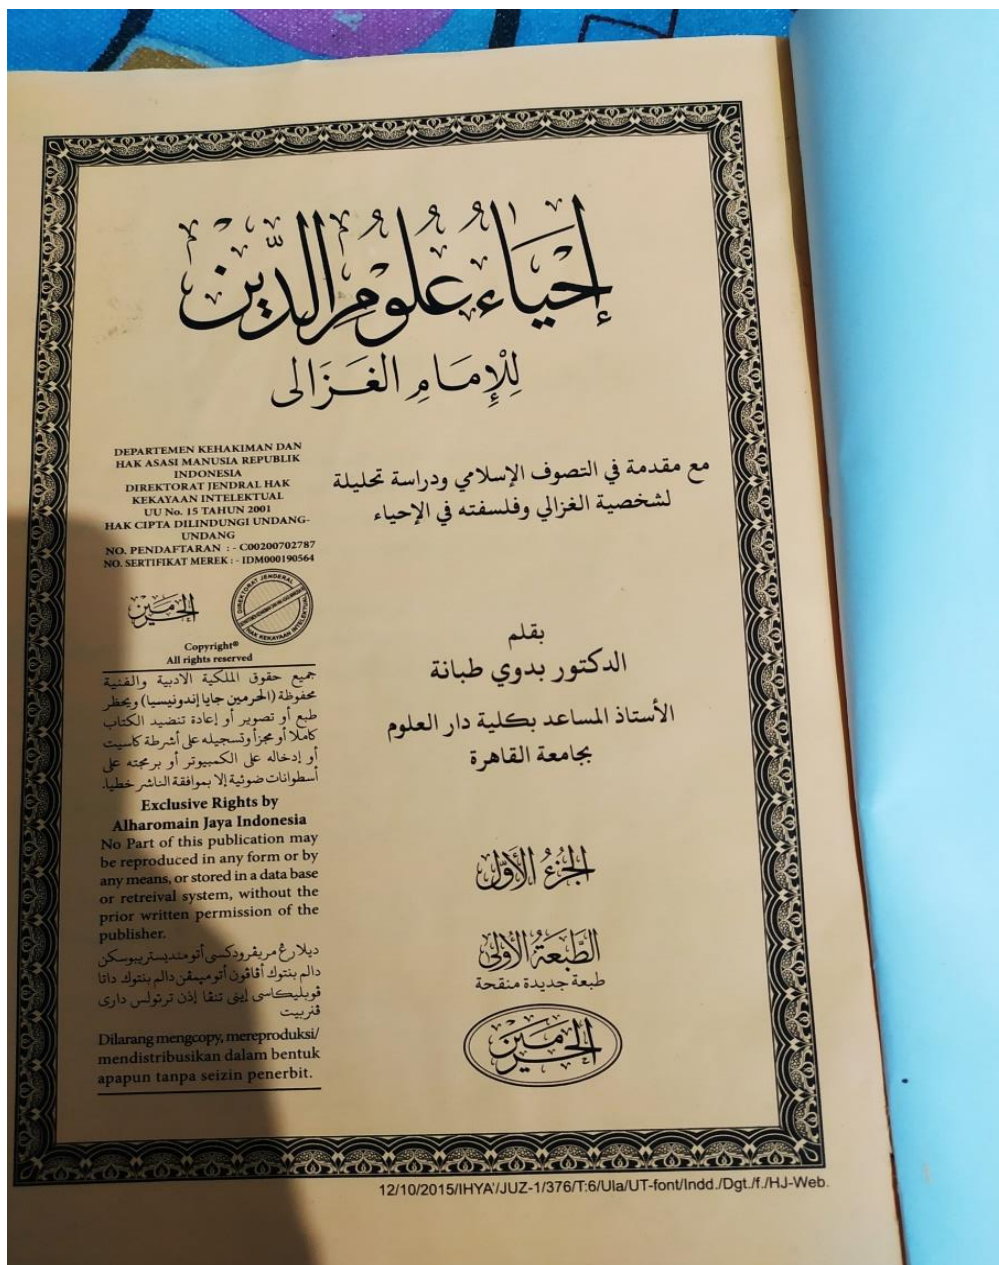 إِحْيَاءُ عُلُومِ الدِّيْنِ
لِلْإِمَامِ الغَزَالى
مع مقدمة في التصوف الإسلامي ودراسة تحليلة
لشخصية الغزالي وفلسفته في الإحياء
بقلم
الدكتور بدوي طبانة
الأستاذ المساعد بكلية دار العلوم
بجامعة القاهرة
الجُزءُ الأَوَّلُ
الطَّبعَةُ الأُولى
طبعة جديدة منقحة
الحرمين
DEPARTEMEN KEHAKIMAN DAN
HAK ASASI MANUSIA REPUBLIK
INDONESIA
DIREKTORAT JENDRAL HAK
KEKAYAAN INTELEKTUAL
UU No. 15 TAHUN 2001
HAK CIPTA DILINDUNGI UNDANG-
UNDANG
NO. PENDAFTARAN : - C00200702787
NO. SERTIFIKAT MEREK : - IDM000190564
الحرمين
DIREKTORAT JENDERAL
HAK KEKAYAAN INTELEKTUAL
Copyright®
All rights reserved
جميع حقوق الملكية الادبية والفنية
محفوظة (الحرمين جايا إندونيسيا) ويحظر
طبع أو تصوير أو إعادة تنضيد الكتاب
كاملا أو مجزأ وتسجيله على أشرطة كاسيت
أو إدخاله على الكمبيوتر أو برمجته على
أسطوانات ضوئية إلا بموافقة الناشر خطيا.
Exclusive Rights by
Alharomain Jaya Indonesia
No Part of this publication may
be reproduced in any form or by
any means, or stored in a data base
or retreival system, without the
prior written permission of the
publisher.
ديلارڠ مريڤرودكسى أتو منديستريبوسكن
دالم بنتوك أڤاڤون أتو ميمڤن دالم بنتوك داتا
ڤوبليكاسى إينى تنڤا إذن ترتولس دارى
ڤنربيت
Dilarang mengcopy, mereproduksi/
mendistribusikan dalam bentuk
apapun tanpa seizin penerbit.
12/10/2015/IHYA'/JUZ-1/376/T:6/Ula/UT-font/Indd./Dgt./f./HJ-Web.